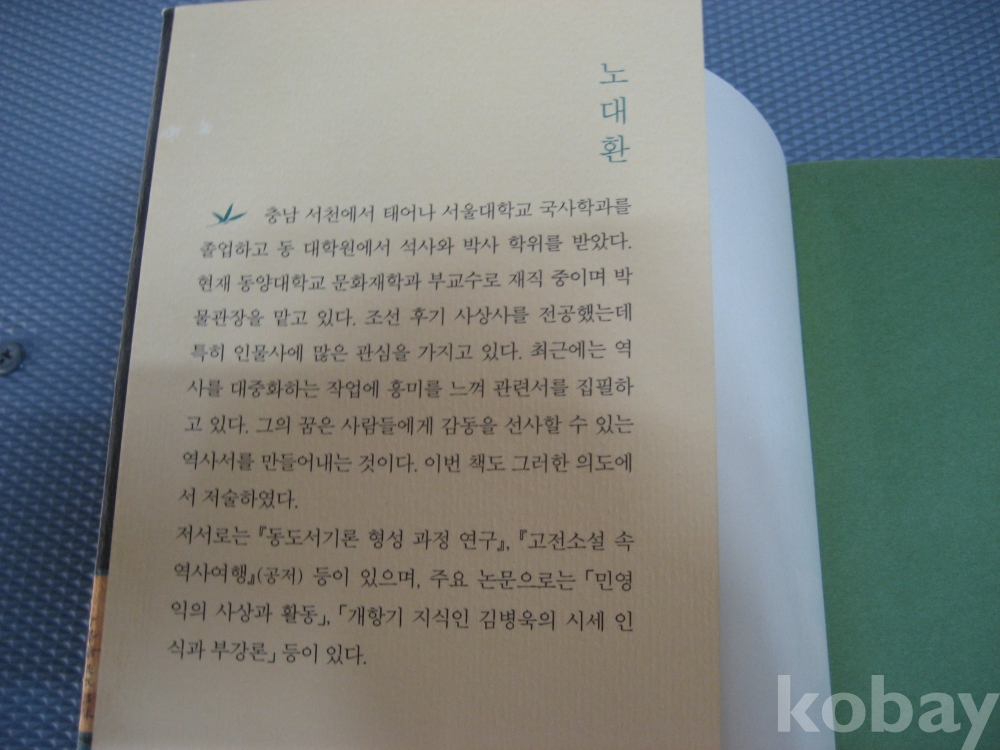 노대환
충남 서천에서 태어나 서울대학교 국사학과를
졸업하고 동 대학원에서 석사와 박사 학위를 받았다.
현재 동양대학교 문화재학과 부교수로 재직 중이며 박
물관장을 맡고 있다. 조선 후기 사상사를 전공했는데
특히 인물사에 많은 관심을 가지고 있다. 최근에는 역
사를 대중화하는 작업에 흥미를 느껴 관련서를 집필하
고 있다. 그의 꿈은 사람들에게 감동을 선사할 수 있는
역사서를 만들어내는 것이다. 이번 책도 그러한 의도에
서 저술하였다.
저서로는 『동도서기론 형성 과정 연구』, 『고전소설 속
역사여행』(공저) 등이 있으며, 주요 논문으로는 「민영
익의 사상과 활동」, 「개항기 지식인 김병욱의 시세 인
식과 부강론」 등이 있다.
kobay